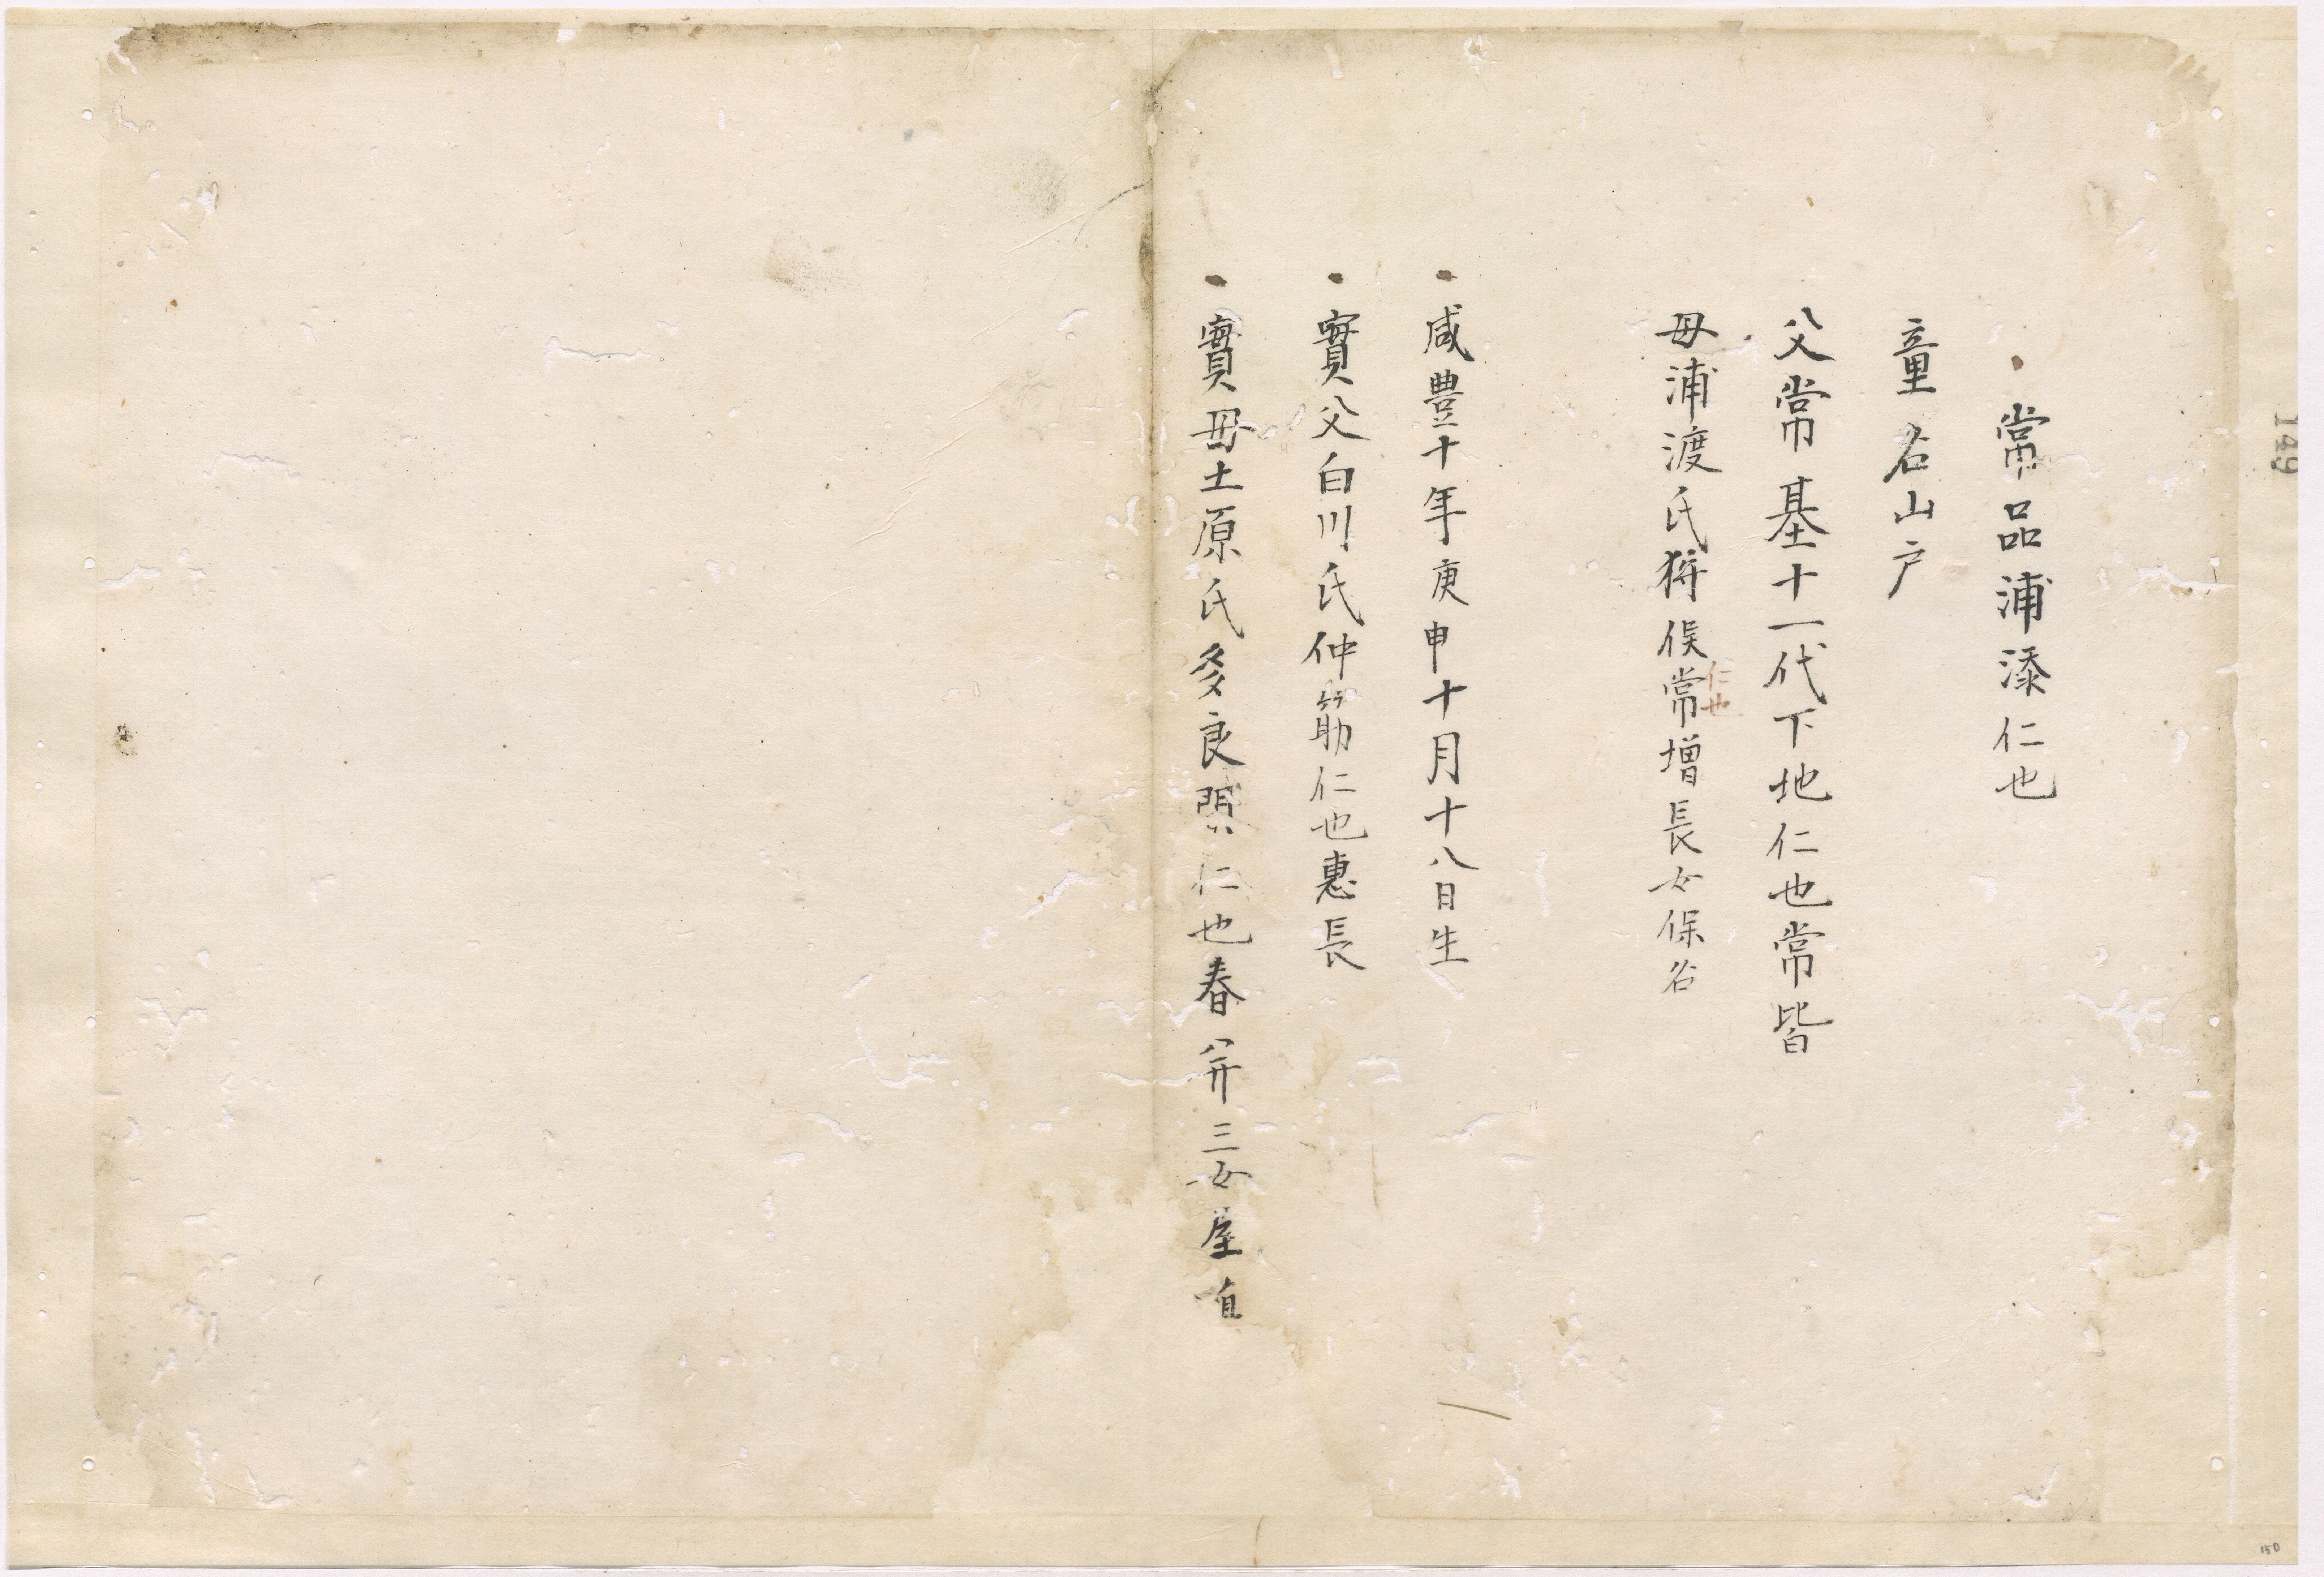 常品浦添仁也
童名山戸
父常基十一代下地仁也常皆
母浦渡氏狩俣仁也常増長女保名
咸豊十年庚申十月十八日生
實父白川氏仲筋仁也惠長
實母土原氏多良間仁也春芥三女屋真
149
150